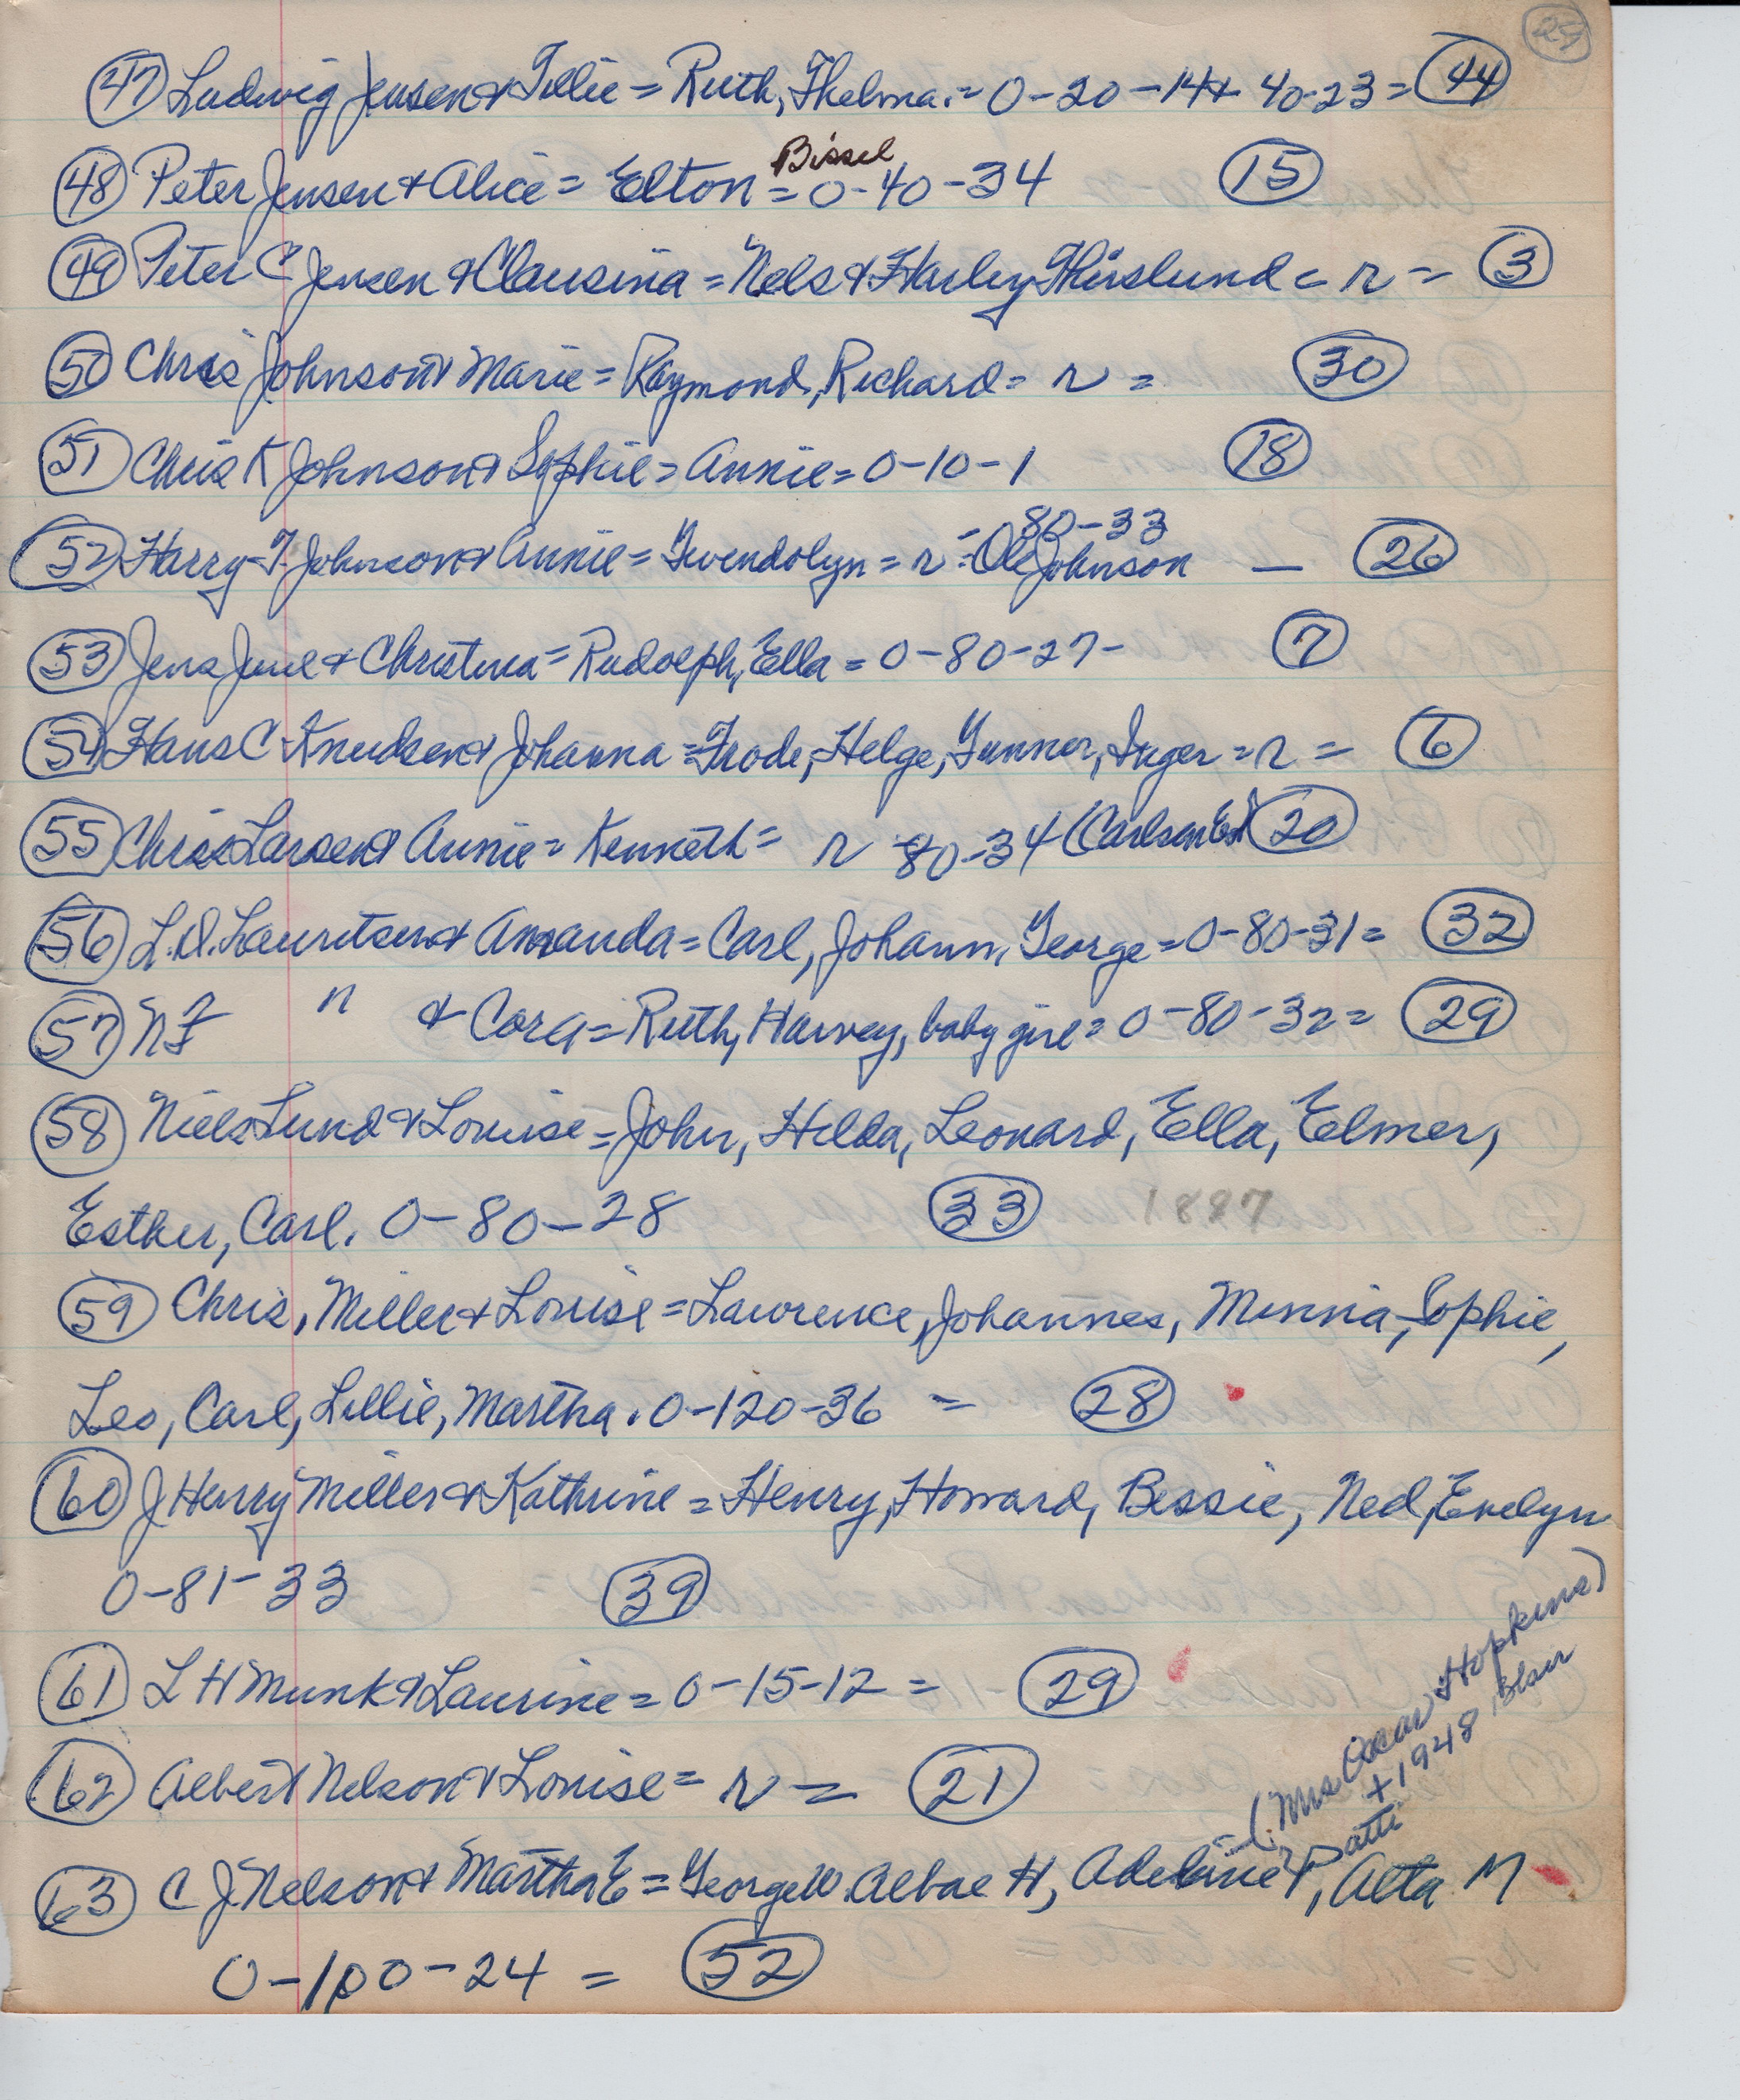 25
(47) Ludwig Jensen & Tillie = Ruth, Thelma. = 0-20-14 + 40-23 = (44)
Bissel
(48) Peter Jensen & Alice = Elton = 0-40-34 (15)
(49) Peter C Jensen & Clausina = Nels & Harley Thirslund = r = (3)
(50) Chris Johnson & Marie = Raymond, Richard = r = (30)
(51) Chris K Johnson & Sophie = Annie = 0-10-1 (18)
= 80-33
(52) Harry T. Johnson & Annie = Gwendolyn = r = Ole Johnson — (26)
(53) Jens Juul & Christina = Rudolph, Ella = 0-80-27- (7)
(54) Hans C Knudsen & Johanna = Frode, Helge, Gunner, Inger = r = (6)
(55) Chris Larsen & Annie = Kenneth = r 80-34 (Carlson Est) (20)
(56) L.D. Lauritsen & Amanda = Carl, Johann, George = 0-80-31 = (32)
(57) NF " & Cora = Ruth, Harvey, baby girl = 0-80-32 = (29)
(58) Niels Lund & Louise = John, Hilda, Leonard, Ella, Elmer,
Esther, Carl. 0-80-28 (33) 1897
(59) Chris, Miller & Louise = Lawrence, Johannes, Minnia, Sophie,
Leo, Carl, Lillie, Martha. 0-120-36 = (28)
(60) J Henry Miller & Kathrine = Henry, Howard, Bessie, Ned, Evelyn
0-81-33 (39)
(61) L H Munk & Laurine = 0-15-12 = (29)
(62) Albert Nelson & Louise = r = (21)
(Mrs Oscar Hopkins)
+ 1948 Blair
Patti
(63) C J. Nelson & Martha E = George W. Albae H, Adeline P, Alta M
0-100-24 = (52)